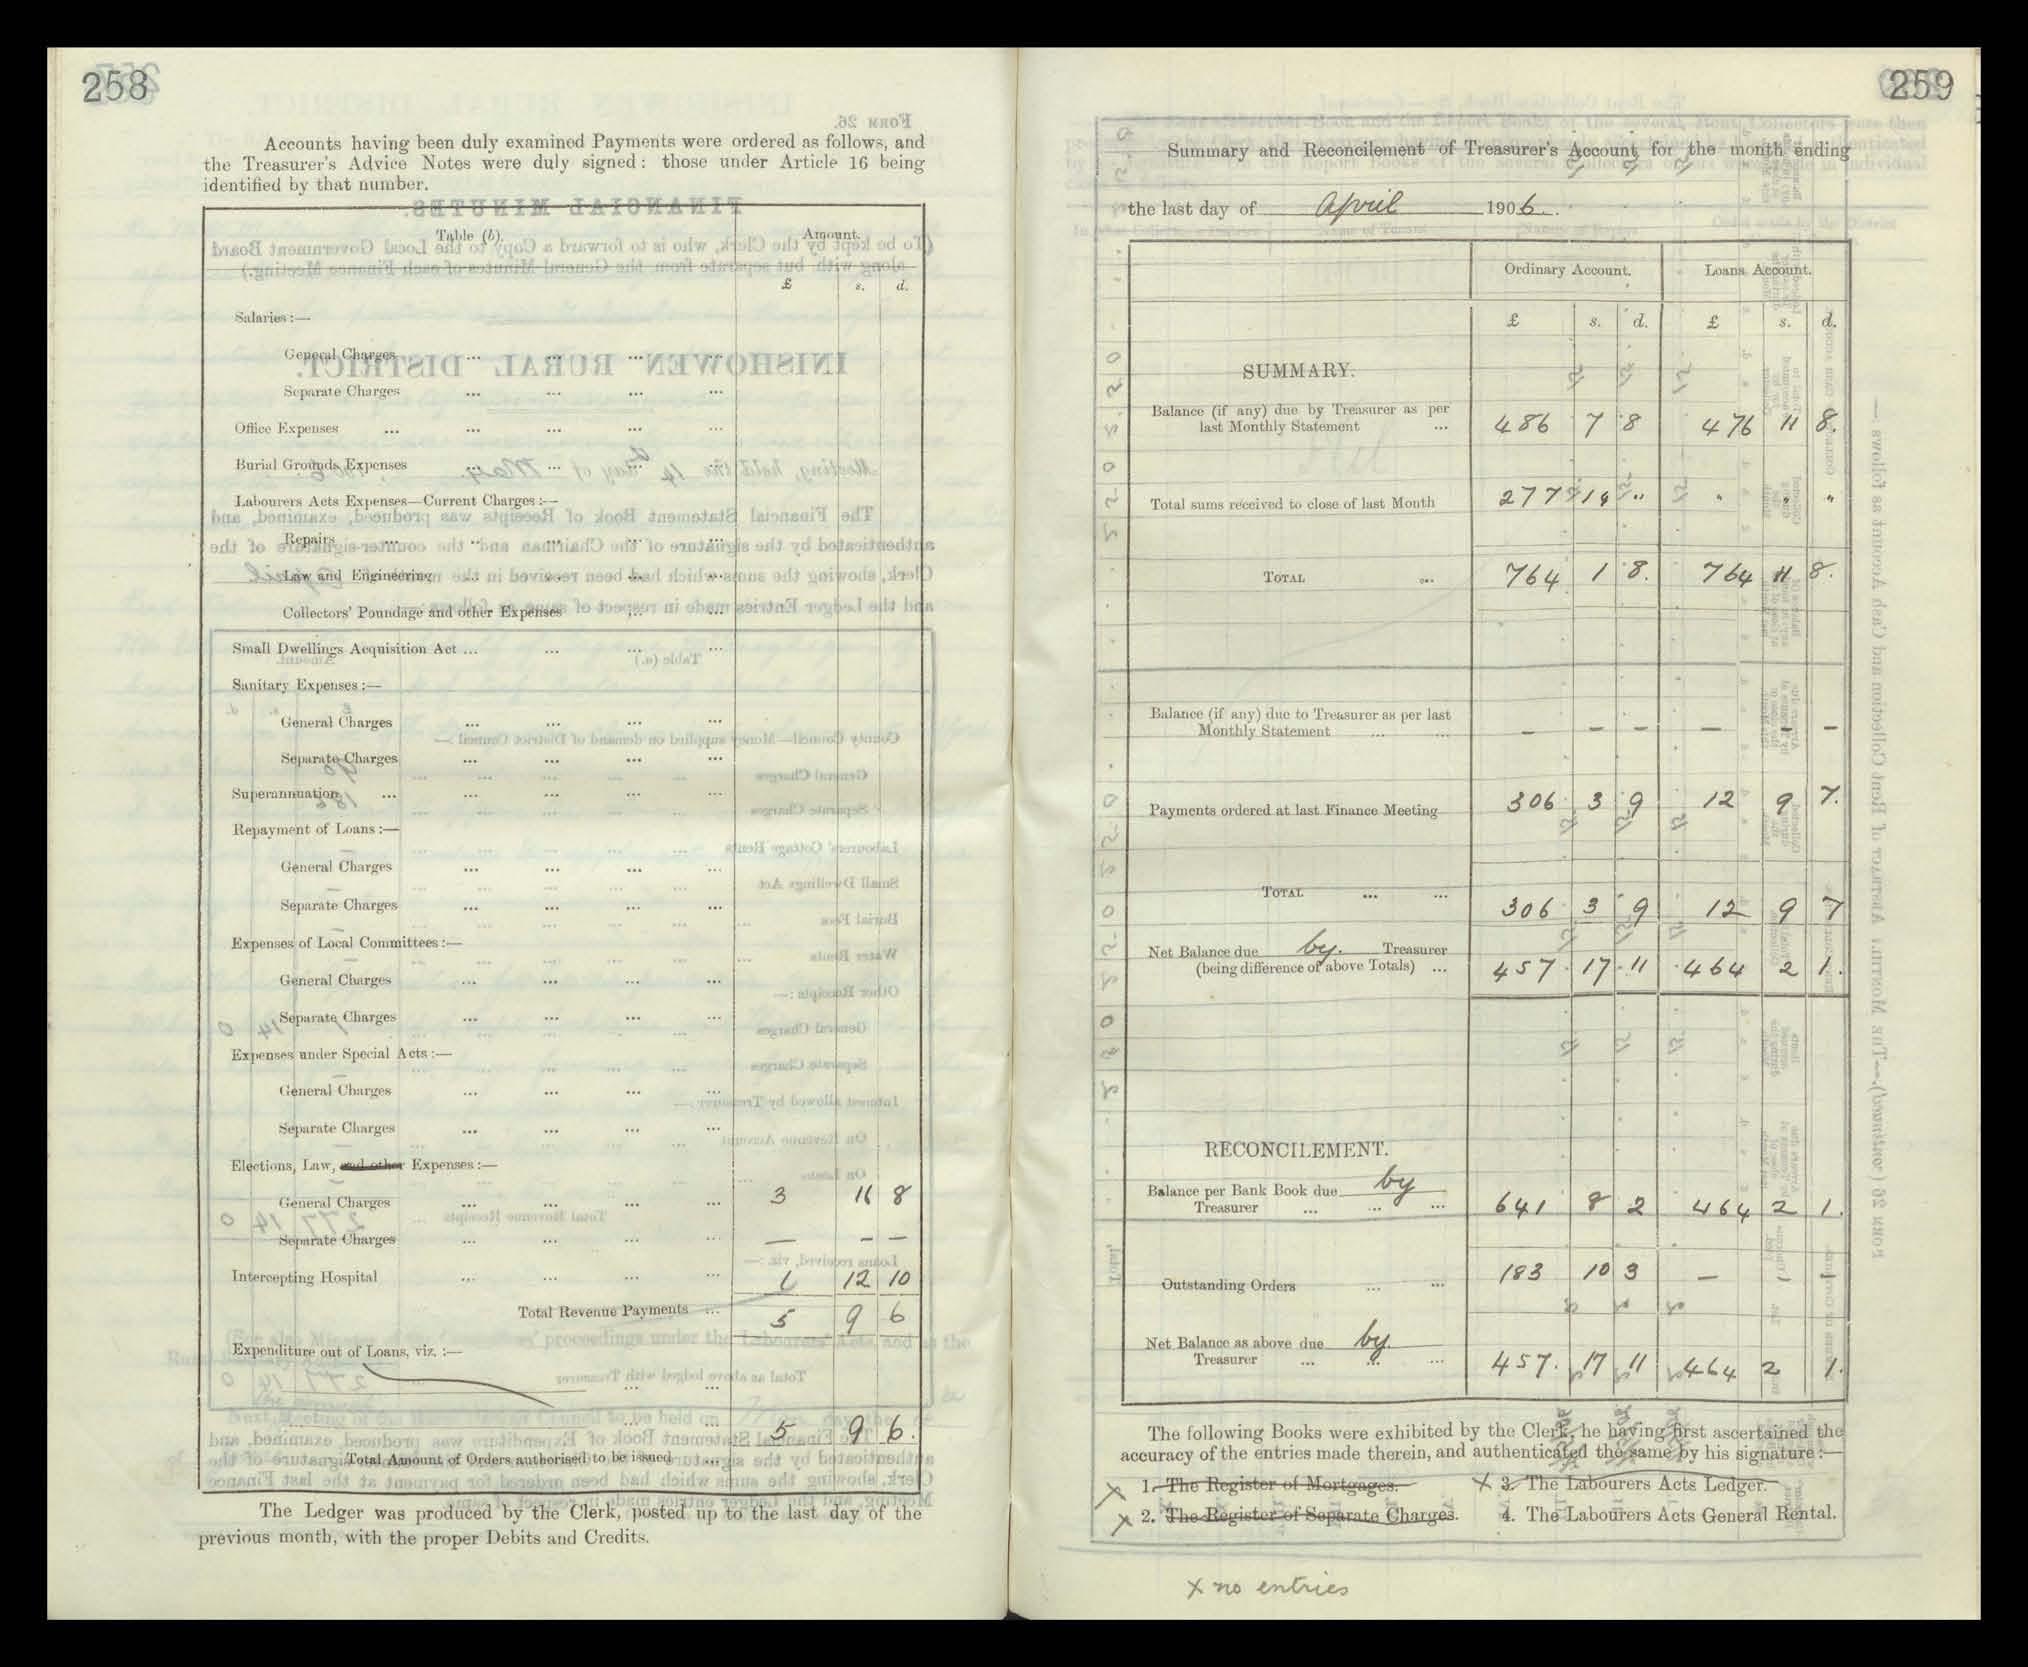 258
Accounts having been duly examined Payments were ordered as follows, and
the Treasurer's Advice Notes were duly signed: those under Article 16 being
identified by that number.
Table (b). Amount.
£ s. d.
Salaries:—
General Charges ... ... ... ...
Separate Charges ... ... ... ...
Office Expenses ... ... ... ... ...
Burial Grounds Expenses ... ... ... ...
Labourers Acts Expenses—Current Charges:—
Repairs ... ... ... ... ...
Law and Engineering ... ... ... ...
Collectors' Poundage and other Expenses ... ...
Small Dwellings Acquisition Act ... ... ... ...
Sanitary Expenses:—
General Charges ... ... ... ...
Separate Charges ... ... ... ...
Superannuation ... ... ... ... ...
Repayment of Loans:—
General Charges ... ... ... ...
Separate Charges ... ... ... ...
Expenses of Local Committees:—
General Charges ... ... ... ...
Separate Charges ... ... ... ...
Expenses under Special Acts:—
General Charges ... ... ... ...
Separate Charges ... ... ... ...
Elections, Law, and other Expenses:—
General Charges ... ... ... ... 3 16 8
Separate Charges ... ... ... ... — — —
Intercepting Hospital ... ... ... ... 1 12 10
Total Revenue Payments ... 5 9 6
Expenditure out of Loans, viz.:—
... ...
... ... 5 9 6.
Total Amount of Orders authorised to be issued ...
The Ledger was produced by the Clerk, posted up to the last day of the
previous month, with the proper Debits and Credits.
259
Summary and Reconcilement of Treasurer's Account for the month ending
the last day of April 1906.
Ordinary Account. Loans Account.
£ s. d. £ s. d.
SUMMARY.
Balance (if any) due by Treasurer as per
last Monthly Statement ... 486 7 8 476 11 8.
Total sums received to close of last Month 277 14 " " " "
TOTAL ... 764 1 8. 764 11 8.
Balance (if any) due to Treasurer as per last
Monthly Statement ... ... — — — — — —
Payments ordered at last Finance Meeting 306 3 9 12 9 7.
TOTAL ... ... 306 3 9 12 9 7
Net Balance due by. Treasurer
(being difference of above Totals) ... 457 17 11 464 2 1.
RECONCILEMENT.
Balance per Bank Book due by
Treasurer ... ... ... 641 8 2 464 2 1.
Outstanding Orders ... ... 183 10 3 —
Net Balance as above due by.
Treasurer ... ... ... 457. 17 11 464 2 1.
The following Books were exhibited by the Clerk, he having first ascertained the
accuracy of the entries made therein, and authenticated the same by his signature:—
x 1. The Register of Mortgages. x 3. The Labourers Acts Ledger.
x 2. The Register of Separate Charges. 4. The Labourers Acts General Rental.
x no entries